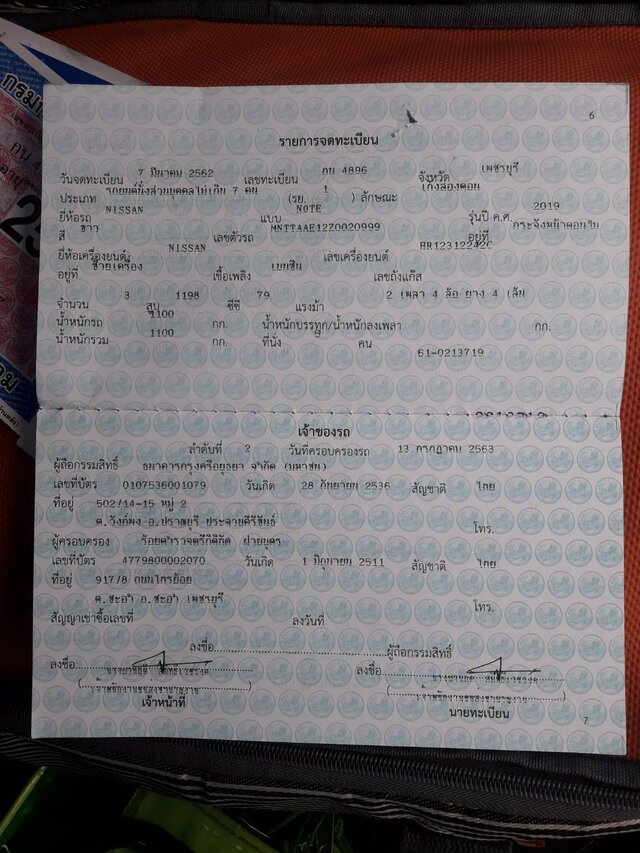 กรม
กน 4
25
6
รายการจดทะเบียน
วันจดทะเบียน 7 มีนาคม 2562 เลขทะเบียน กน 4896 จังหวัด เพชรบุรี
ประเภท รถยนต์นั่งส่วนบุคคลไม่เกิน 7 คน (รย. 1 ) ลักษณะ เก๋งสองตอน
ยี่ห้อรถ NISSAN แบบ NOTE รุ่นปี ค.ศ. 2019
สี ขาว เลขตัวรถ MNTTAAE12Z0020999 อยู่ที่ กระจังหน้าตอนใน
ยี่ห้อเครื่องยนต์ NISSAN เลขเครื่องยนต์ HR12312242C
อยู่ที่ ซ้ายเครื่อง เชื้อเพลิง เบนซิน เลขถังแก๊ส
จำนวน 3 สูบ 1198 ซีซี 79 แรงม้า 2 เพลา 4 ล้อ ยาง 4 เส้น
น้ำหนักรถ 1100 กก. น้ำหนักบรรทุก/น้ำหนักลงเพลา กก.
น้ำหนักรวม 1100 กก. ที่นั่ง คน
61-0213719
เจ้าของรถ
ลำดับที่ 2 วันที่ครอบครองรถ 13 กรกฎาคม 2563
ผู้ถือกรรมสิทธิ์ ธนาคารกรุงศรีอยุธยา จำกัด (มหาชน)
เลขที่บัตร 0107536001079 วันเกิด 28 กันยายน 2536 สัญชาติ ไทย
ที่อยู่ 502/14-15 หมู่ 2
ต.วังก์พง อ.ปราณบุรี ประจวบคีรีขันธ์ โทร.
ผู้ครอบครอง ร้อยตำรวจตรีกิติภัค
เลขที่บัตร 4779800002070 วันเกิด 1 มิถุนายน 2511 สัญชาติ ไทย
ที่อยู่ 917/8 ถนนไทรย้อย
ต.ชะอำ อ.ชะอำ เพชรบุรี โทร.
สัญญาเช่าซื้อเลขที่ ลงวันที่
ลงชื่อ ผู้ถือกรรมสิทธิ์
ลงชื่อ ลงชื่อ
เจ้าหน้าที่ นายทะเบียน
7